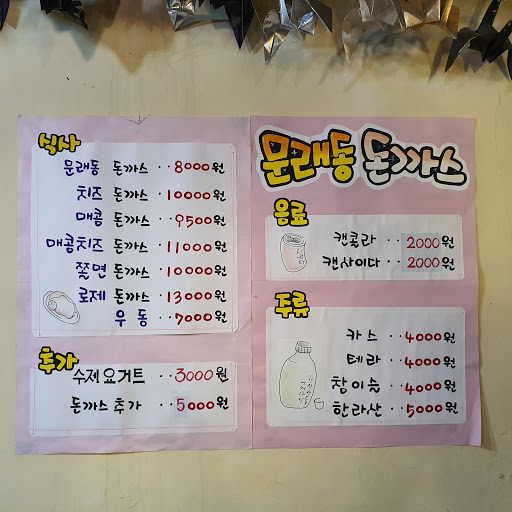 식사
문래동 돈까스 ·· 8000원
치즈 돈까스 ·· 10000원
매콤 돈까스 ·· 9500원
매콤치즈 돈까스 ·· 11000원
쫄면 돈까스 ·· 10000원
로제 돈까스 ·· 13000원
우동 ·· 7000원
추가
수제요거트 ·· 3000원
돈까스 추가 ·· 5000원
문래동 돈까스
음료
캔콜라 ·· 2000원
캔사이다 ·· 2000원
주류
카스 ·· 4000원
테라 ·· 4000원
참이슬 ·· 4000원
한라산 ·· 5000원